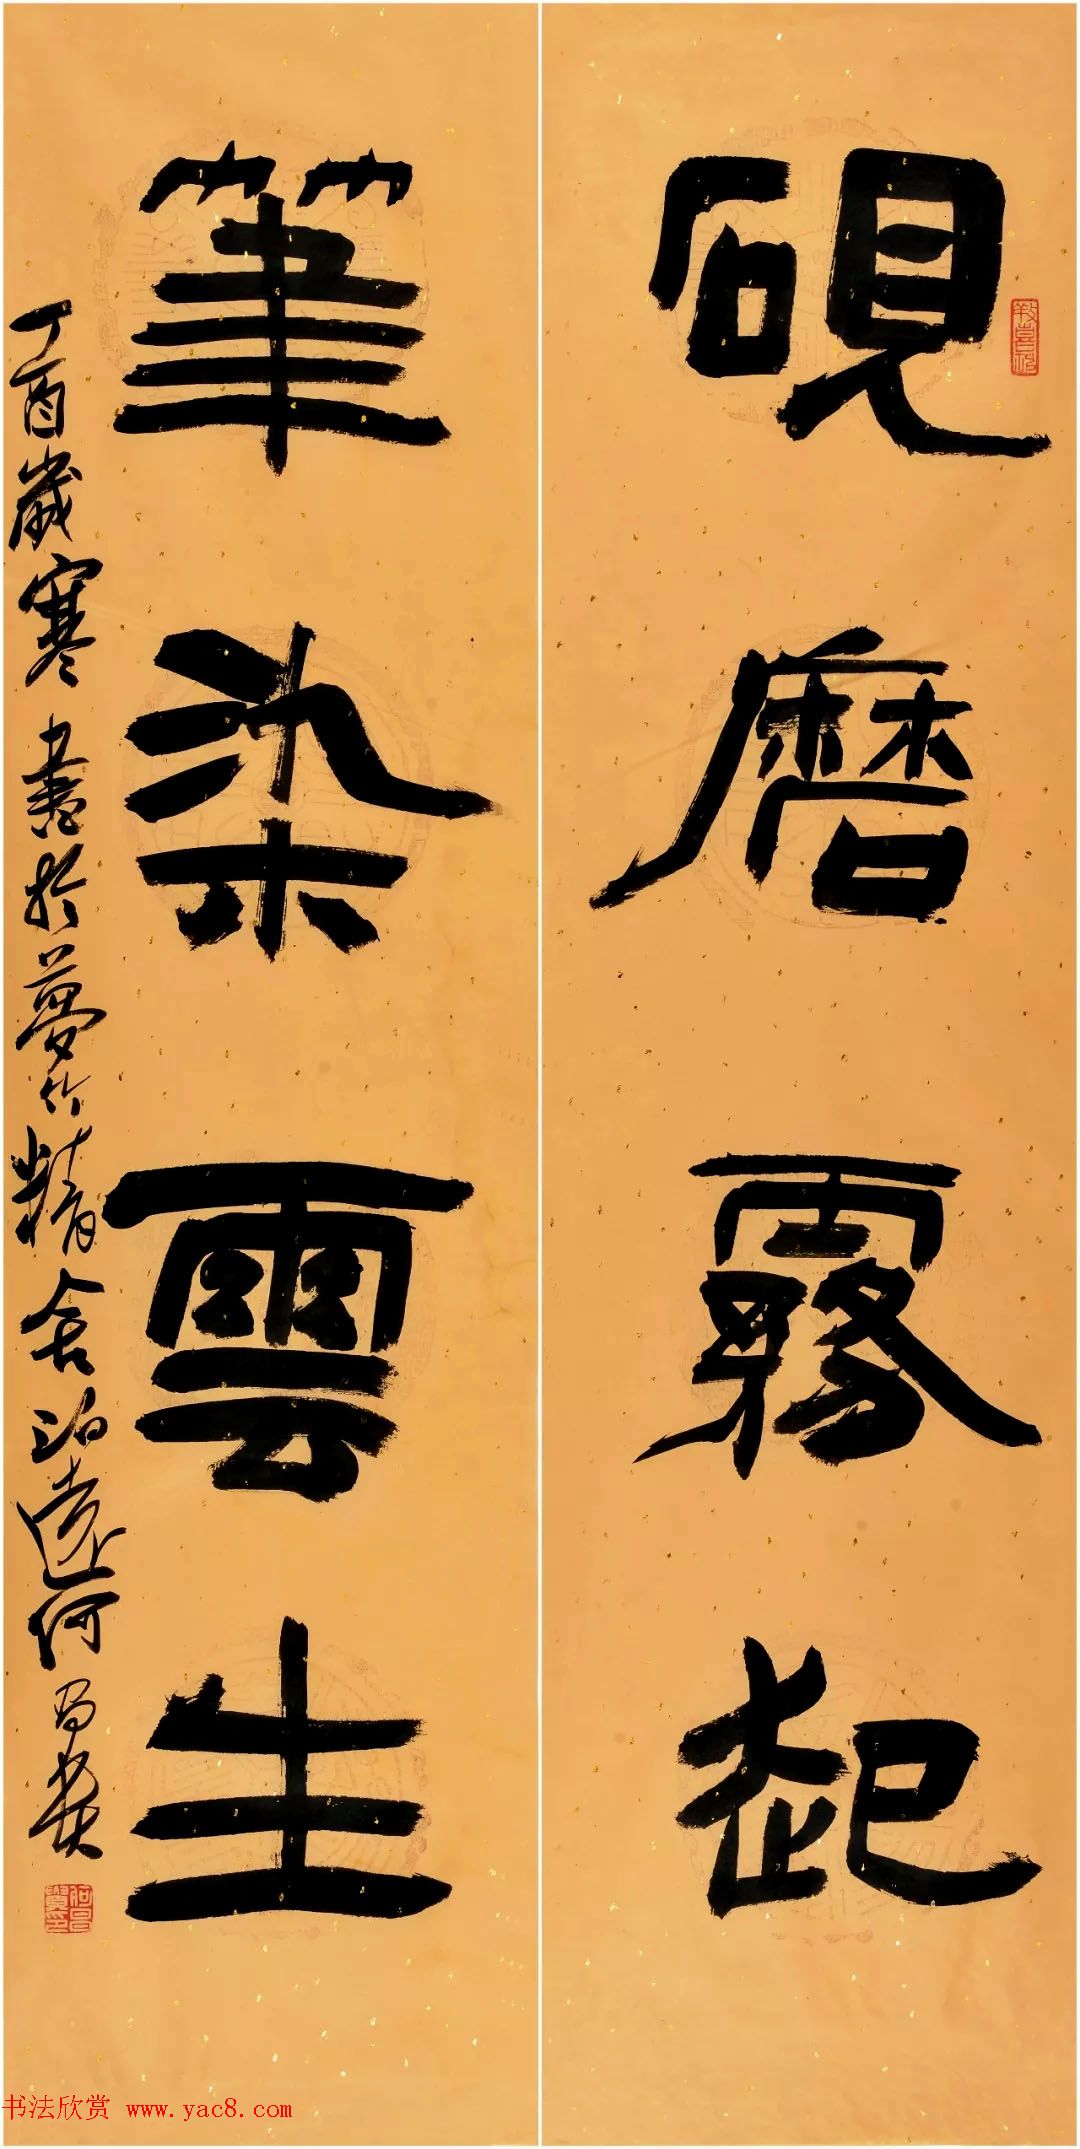 硯磨霧起
筆染雲生
丁酉歲寒書於夢竹精舍泊遠何昌贵
书法欣赏 www.yac8.com